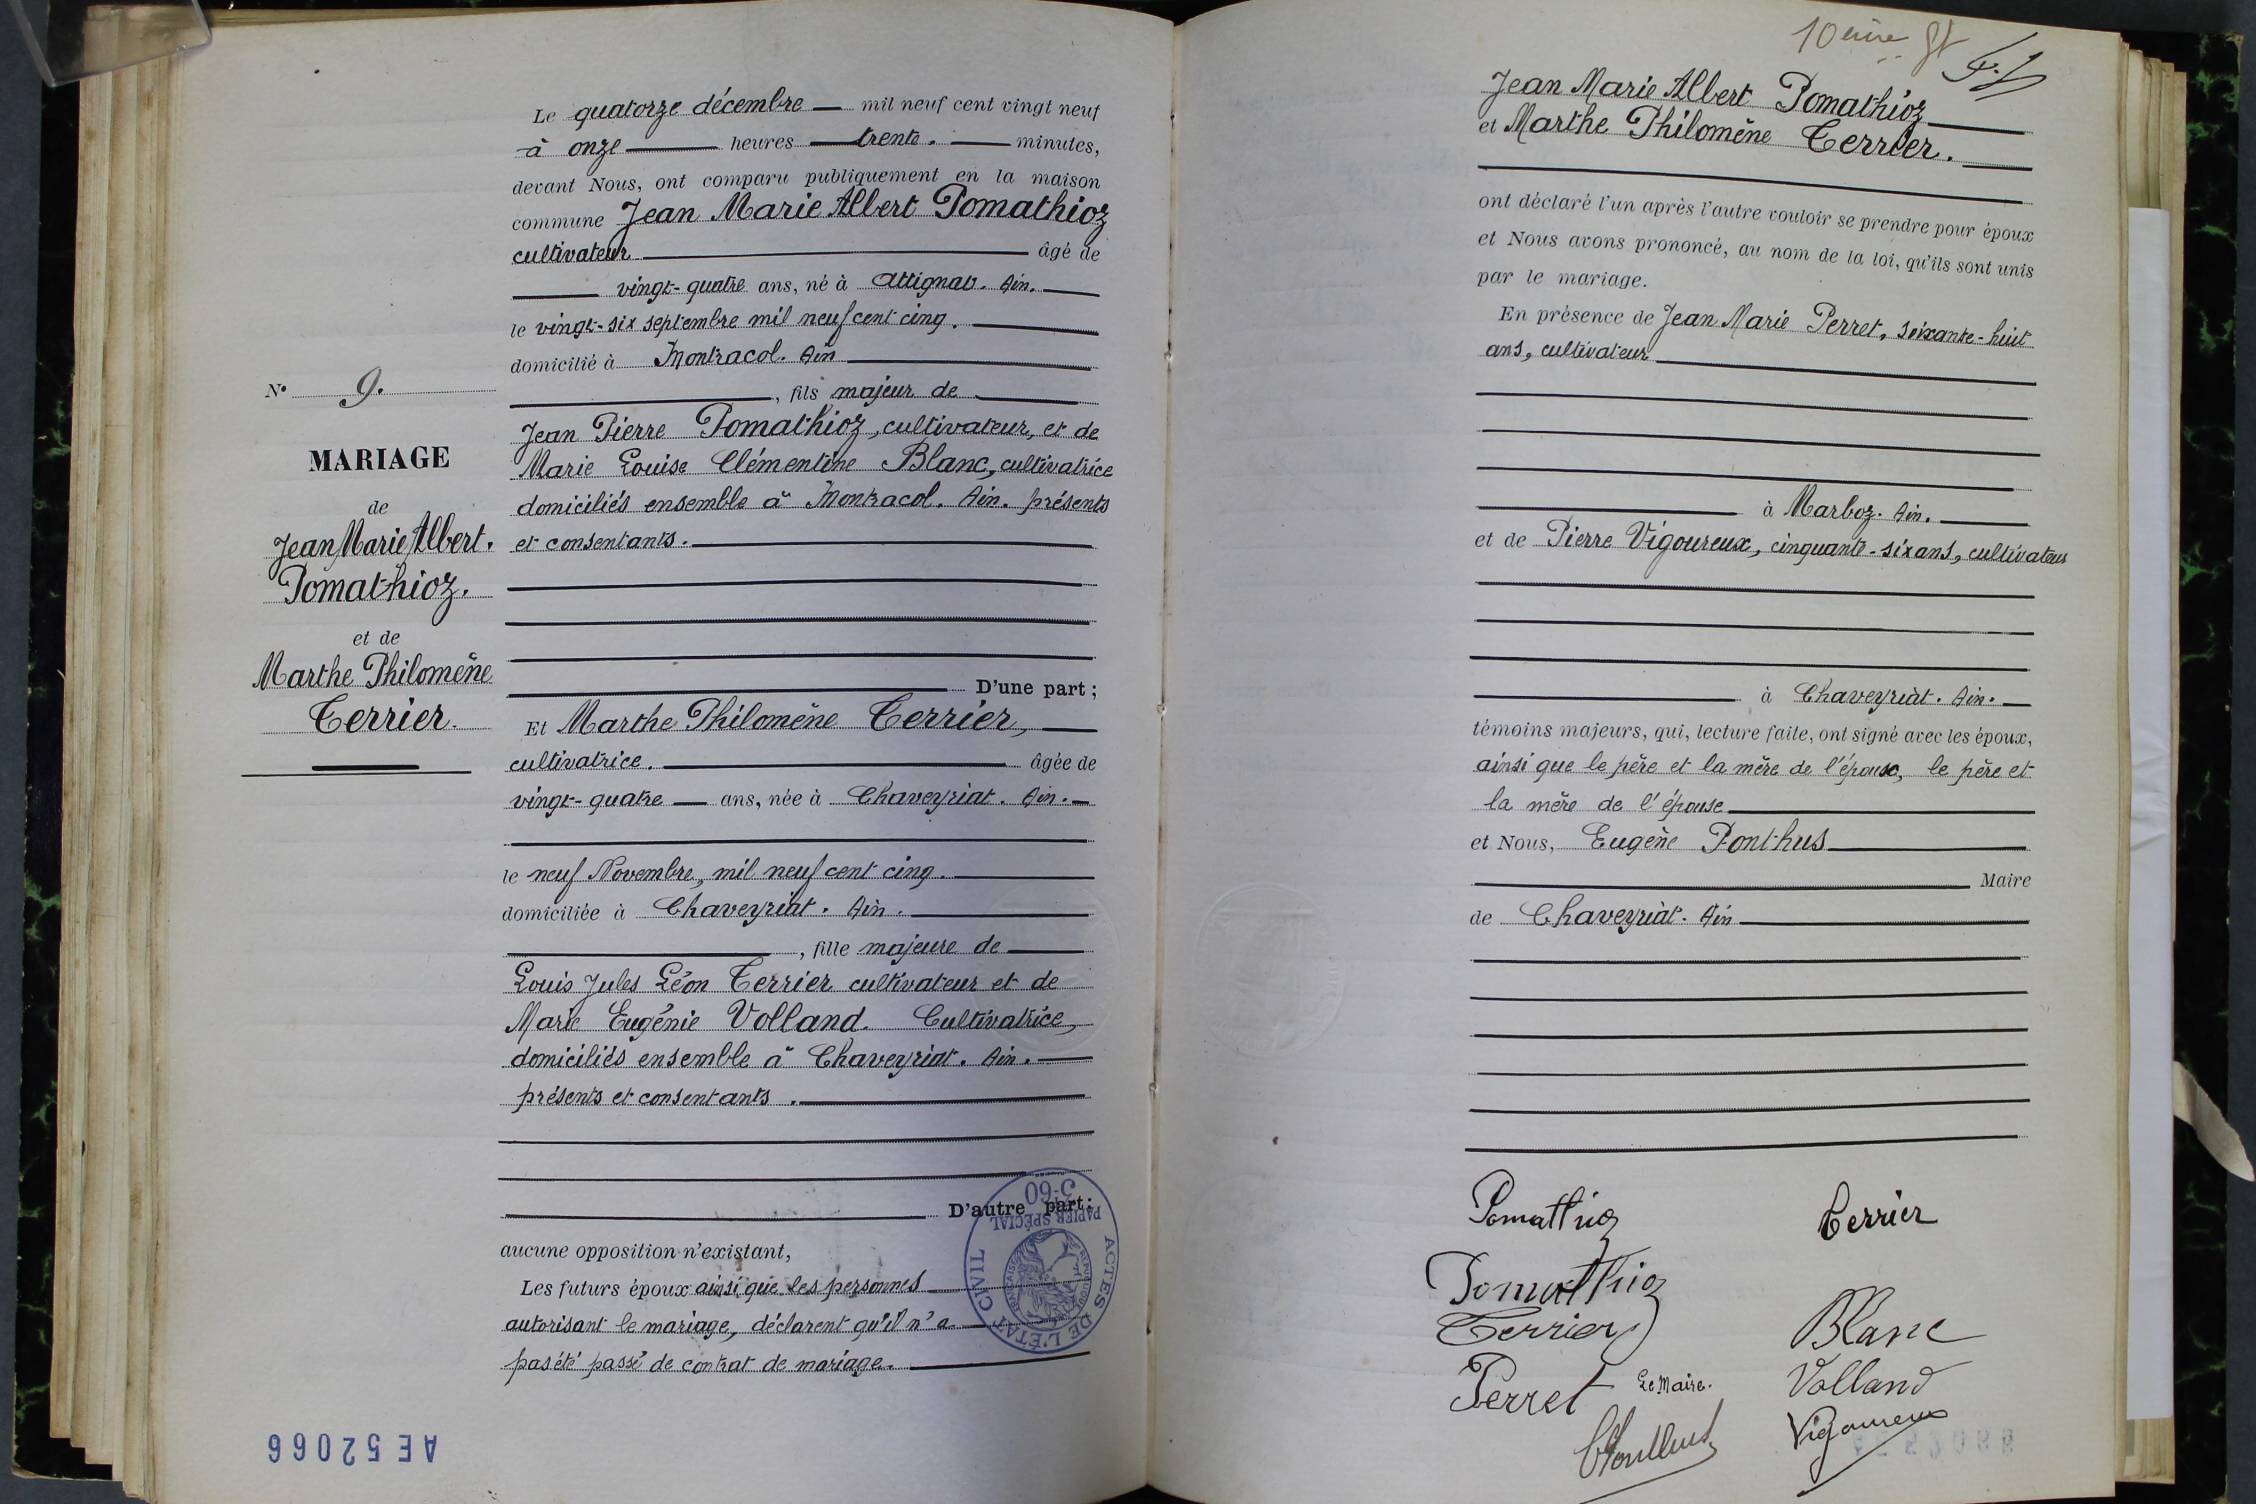 Le quatorze décembre mil neuf cent vingt neuf
à onze heures trente. minutes,
devant Nous, ont comparu publiquement en la maison
commune Jean Marie Albert Pomathioz
cultivateur âgé de
vingt-quatre ans, né à Attignat. Ain.
le vingt-six septembre mil neuf cent cinq.
domicilié à Montracol. Ain
, fils majeur de
Jean Pierre Pomathioz, cultivateur, et de
Marie Louise Clémentine Blanc, cultivatrice
domiciliés ensemble à Montracol. Ain. présents
et consentants.
D'une part;
Et Marthe Philomène Terrier,
cultivatrice. âgée de
vingt-quatre ans, née à Chaveyriat. Ain.
le neuf Novembre, mil neuf cent cinq.
domiciliée à Chaveyriat. Ain.
, fille majeure de
Louis Jules Léon Terrier cultivateur et de
Marie Eugénie Volland. Cultivatrice,
domiciliés ensemble à Chaveyriat. Ain.
présents et consentants.
D'autre part;
aucune opposition n'existant,
Les futurs époux ainsi que les personnes
autorisant le mariage, déclarent qu'il n'a
pas été passé de contrat de mariage.
N° 9.
MARIAGE
de
Jean Marie Albert.
Pomathioz.
et de
Marthe Philomène
Terrier.
3-60
PAPIER SPÉCIAL
ACTES DE L'ÉTAT CIVIL
RÉPUBLIQUE FRANÇAISE
AE52066
10 ème ft
Jean Marie Albert Pomathioz
et Marthe Philomène Terrier.
ont déclaré l'un après l'autre vouloir se prendre pour époux
et Nous avons prononcé, au nom de la loi, qu'ils sont unis
par le mariage.
En présence de Jean Marie Perret, soixante-huit
ans, cultivateur
à Marboz. Ain.
et de Pierre Vigoureux, cinquante-six ans, cultivateur
à Chaveyriat. Ain.
témoins majeurs, qui, lecture faite, ont signé avec les époux,
ainsi que le père et la mère de l'épouse, le père et
la mère de l'épouse
et Nous, Eugène Ponthus
Maire
de Chaveyriat. Ain
Pomathioz Terrier
Pomathioz
Terrier Blanc
Perret Le Maire. Volland
EPonthus Vigoureux